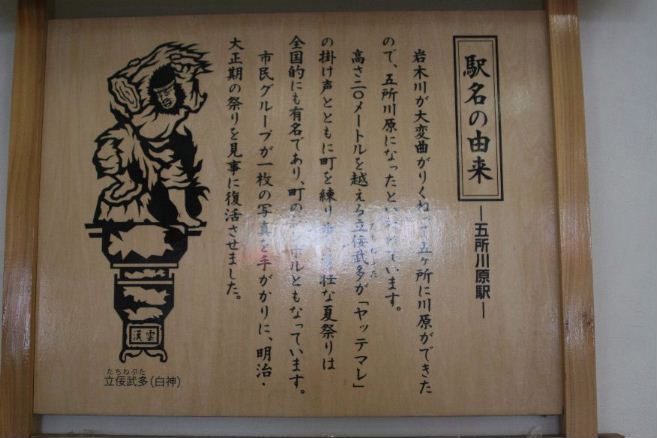 駅名の由来
―五所川原駅―
岩木川が大変曲がりくねって五ヶ所に川原ができた
ので、五所川原になったといわれています。
高さ二〇メートルを越える立佞武多が「ヤッテマレ」
の掛け声とともに町を練り歩く勇壮な夏祭りは
全国的にも有名であり、町のシンボルともなっています。
市民グループが一枚の写真を手がかりに、明治・
大正期の祭りを見事に復活させました。
雲漢
たちねぷた
立佞武多(白神)